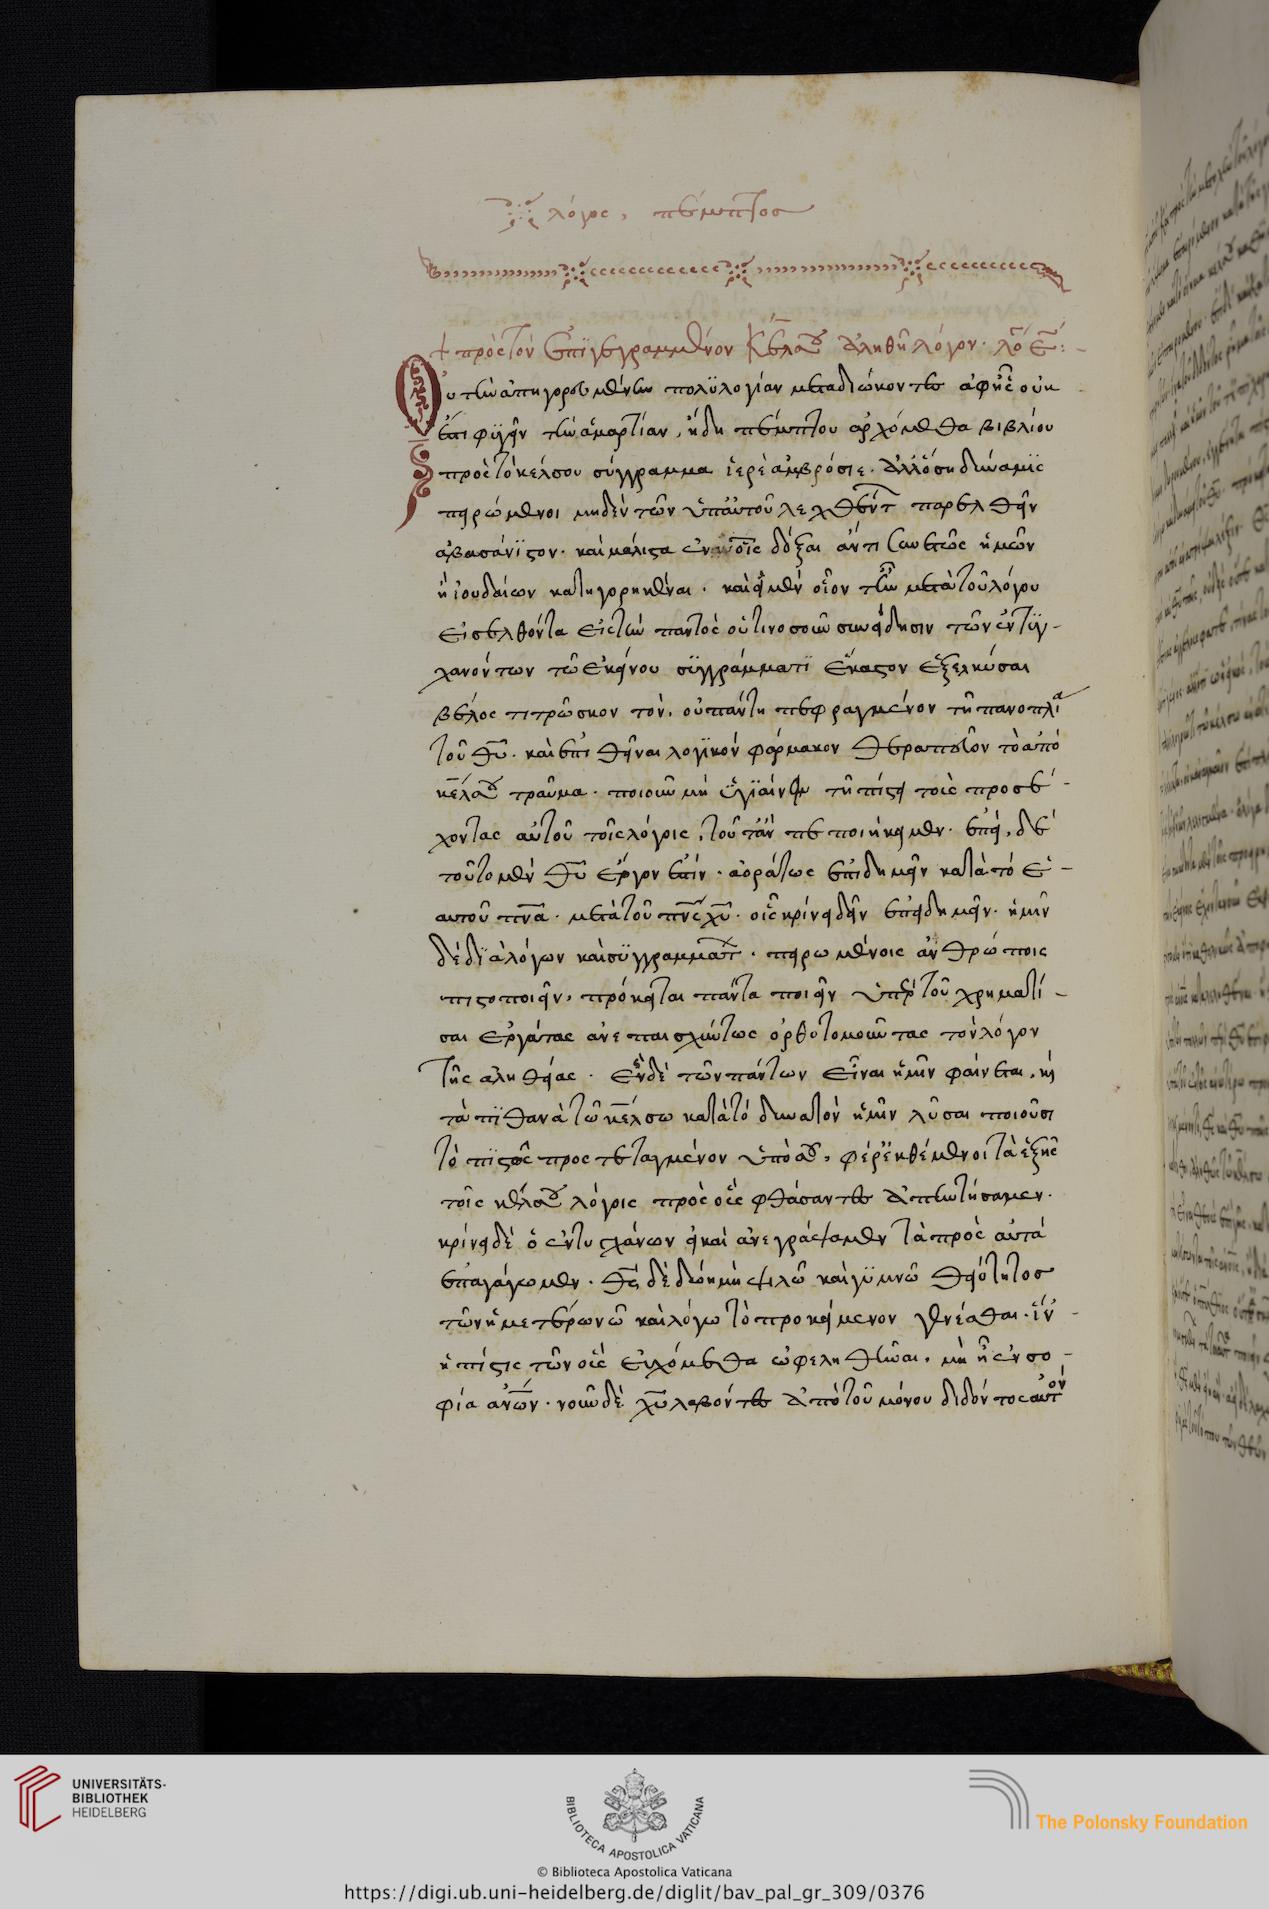 λόγος, πέμπτος
πρὸς τὸν ἐπιγεγραμμένον Κέλσου ἀληθῆ λόγον. λό ε:
Οὐ τὴν ἀπηγορευμένην πολϋλογίαν μεταδιώκοντες ἀφ' ἧς οὐκ
ἔστι φϋγεῖν τὴν ἁμαρτίαν, ἤδη πέμπτου ἀρχόμεθα βιβλίου
πρὸς τὸ κέλσου σύγγραμμα ἱερὲ ἀμβρόσιε. ἀλλ' ὅση δύναμϊς
πειρώμενοι μηδὲν τῶν ὑπ' αὐτοῦ λεχθέντ παρελθεῖν
ἀβασάνϊστον. καὶ μάλιστα ἐν οἷς δόξαι ἄν τισι σαφῶς ἡμῶν
ἢ ἰουδαίων κατηγορηκέναι. καὶ εἰ μὲν οἷόν τ' ἦν μετὰ τοῦ λόγου
εἰσελθόντα εἰς τὴν παντὸς οὑτινοσοῦν συνείδησιν τῶν ἐντϋγ-
χανόντων τῶ ἐκείνου σϋγγράμματϊ ἕκαστον ἐξελκύσαι
βέλος τιτρῶσκον τὸν, οὐ πάντη πεφραγμένον τῆ πανοπλία
τοῦ θυ. καὶ ἐπιθεῖναι λογϊκὸν φάρμακον θεραπεῦον τὸ ἀπὸ
κέλσου τραῦμα. ποιοῦν μὴ ὑγϊαίνειν τῆ πίστει τοὺς προσέ-
χοντας αὐτοῦ τοῖς λόγοις, τοῦτ' ἂν πεποιήκειμεν. ἐπεὶ, δὲ
τοῦτο μὲν θυ ἔργον ἐστίν. ἀοράτως ἐπιδημεῖν κατὰ τὸ ἑ-
αυτοῦ πνα. μετὰ τοῦ πνς χυ. οἷς κρίνει δεῖν ἐπιδημεῖν. ἡμῖν
δὲ διὰ λόγων καὶ σϋγγραμμάτ. πειρωμένοις ἀνθρώποις
πιστοποιεῖν, πρόκειται πάντα ποιεῖν ὑπὲρ τοῦ χρηματί-
σαι ἐργάτας ἀνεπαισχύντως ὀρθοτομοῦντας τὸν λόγον
τῆς ἀληθείας. ἓν δὲ τῶν πάντων εἶναι ἡμῖν φαίνεται, κ
τὰ πϊθανὰ τῶ κέλσω κατὰ τὸ δυνατὸν ἡμῖν λῦσαι ποιοῦσι
τὸ πϊστῶς προστεταγμένον ὑπὸ σου, φέρ' ἐκθέμενοι τὰ ἑξῆς
τοῖς κέλσου λόγοις πρὸς οὓς φθάσαντες ἀπηντήσαμεν.
κρίνει δὲ ὁ ἐντυγχάνων εἰ καὶ ἀνεγράψαμεν τὰ πρὸς αὐτὰ
ἐπαγάγωμεν. θς δὲ δώη μὴ ψιλῶ καὶ γϋμνῶ θειότητος
τῶ ἡμετέρω νῶ καὶ λόγω τὸ προκείμενον γενέσθαι. ἵν'
ἡ πίστις τῶν οὓς εὐχόμεθα ὠφεληθῆναι, μὴ ἦ ἐν σο-
φία ἀνων. νοῦν δὲ χυ λαβόντες ἀπὸ τοῦ μόνου διδόντος αὐτὸν
UNIVERSITÄTS-
BIBLIOTHEK
HEIDELBERG
BIBLIOTECA APOSTOLICA VATICANA
© Biblioteca Apostolica Vaticana
The Polonsky Foundation
https://digi.ub.uni-heidelberg.de/diglit/bav_pal_gr_309/0376